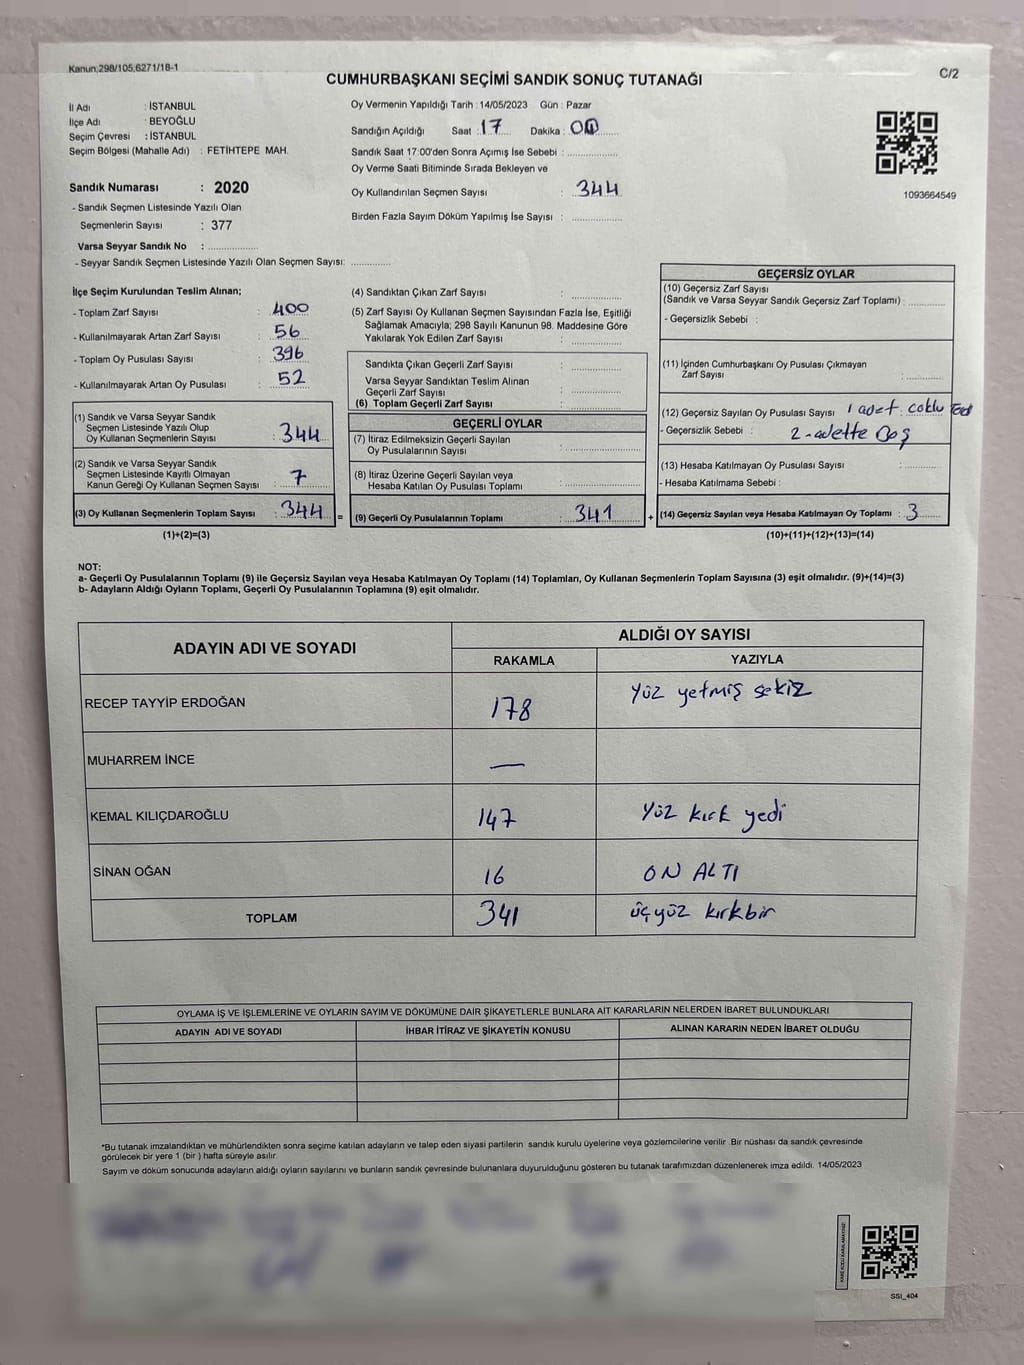 Kanun:298/105,6271/18-1
C/2
CUMHURBAŞKANI SEÇİMİ SANDIK SONUÇ TUTANAĞI
İl Adı : İSTANBUL
İlçe Adı : BEYOĞLU
Seçim Çevresi : İSTANBUL
Seçim Bölgesi (Mahalle Adı) : FETİHTEPE MAH.
Sandık Numarası : 2020
- Sandık Seçmen Listesinde Yazılı Olan
Seçmenlerin Sayısı : 377
Varsa Seyyar Sandık No :
- Seyyar Sandık Seçmen Listesinde Yazılı Olan Seçmen Sayısı:
Oy Vermenin Yapıldığı Tarih : 14/05/2023 Gün : Pazar
Sandığın Açıldığı Saat : 17 Dakika : 00
Sandık Saat 17:00'den Sonra Açımış İse Sebebi :
Oy Verme Saati Bitiminde Sırada Bekleyen ve
Oy Kullandırılan Seçmen Sayısı : 344
Birden Fazla Sayım Döküm Yapılmış İse Sayısı :
1093664549
İlçe Seçim Kurulundan Teslim Alınan;
- Toplam Zarf Sayısı : 400
- Kullanılmayarak Artan Zarf Sayısı : 56
- Toplam Oy Pusulası Sayısı : 396
- Kullanılmayarak Artan Oy Pusulası : 52
(1) Sandık ve Varsa Seyyar Sandık
Seçmen Listesinde Yazılı Olup
Oy Kullanan Seçmenlerin Sayısı : 344
(2) Sandık ve Varsa Seyyar Sandık
Seçmen Listesinde Kayıtlı Olmayan
Kanun Gereği Oy Kullanan Seçmen Sayısı : 7
(3) Oy Kullanan Seçmenlerin Toplam Sayısı : 344 =
(1)+(2)=(3)
(4) Sandıktan Çıkan Zarf Sayısı :
(5) Zarf Sayısı Oy Kullanan Seçmen Sayısından Fazla İse, Eşitliği
Sağlamak Amacıyla; 298 Sayılı Kanunun 98. Maddesine Göre
Yakılarak Yok Edilen Zarf Sayısı :
Sandıkta Çıkan Geçerli Zarf Sayısı :
Varsa Seyyar Sandıktan Teslim Alınan
Geçerli Zarf Sayısı :
(6) Toplam Geçerli Zarf Sayısı :
GEÇERLİ OYLAR
(7) İtiraz Edilmeksizin Geçerli Sayılan
Oy Pusulalarının Sayısı :
(8) İtiraz Üzerine Geçerli Sayılan veya
Hesaba Katılan Oy Pusulası Toplamı :
(9) Geçerli Oy Pusulalarının Toplamı : 341 +
GEÇERSİZ OYLAR
(10) Geçersiz Zarf Sayısı
(Sandık ve Varsa Seyyar Sandık Geçersiz Zarf Toplamı) :
- Geçersizlik Sebebi :
(11) İçinden Cumhurbaşkanı Oy Pusulası Çıkmayan
Zarf Sayısı :
(12) Geçersiz Sayılan Oy Pusulası Sayısı : 1 adet. coklu
- Geçersizlik Sebebi : 2-adette Boş
(13) Hesaba Katılmayan Oy Pusulası Sayısı :
- Hesaba Katılmama Sebebi :
(14) Geçersiz Sayılan veya Hesaba Katılmayan Oy Toplamı : 3
(10)+(11)+(12)+(13)=(14)
NOT:
a- Geçerli Oy Pusulalarının Toplamı (9) ile Geçersiz Sayılan veya Hesaba Katılmayan Oy Toplamı (14) Toplamları, Oy Kullanan Seçmenlerin Toplam Sayısına (3) eşit olmalıdır. (9)+(14)=(3)
b- Adayların Aldığı Oyların Toplamı, Geçerli Oy Pusulalarının Toplamına (9) eşit olmalıdır.
ADAYIN ADI VE SOYADI
ALDIĞI OY SAYISI
RAKAMLA YAZIYLA
RECEP TAYYİP ERDOĞAN 178 Yüz yetmiş sekiz
MUHARREM İNCE —
KEMAL KILIÇDAROĞLU 147 Yüz kırk yedi
SİNAN OĞAN 16 ON ALTI
TOPLAM 341 üçyüz kırkbir
OYLAMA İŞ VE İŞLEMLERİNE VE OYLARIN SAYIM VE DÖKÜMÜNE DAİR ŞİKAYETLERLE BUNLARA AİT KARARLARIN NELERDEN İBARET BULUNDUKLARI
ADAYIN ADI VE SOYADI İHBAR İTİRAZ VE ŞİKAYETİN KONUSU ALINAN KARARIN NEDEN İBARET OLDUĞU
*Bu tutanak imzalandıktan ve mühürlendikten sonra seçime katılan adayların ve talep eden siyasi partilerin sandık kurulu üyelerine veya gözlemcilerine verilir .Bir nüshası da sandık çevresinde
görülecek bir yere 1 (bir ) hafta süreyle asılır.
Sayım ve döküm sonucunda adayların aldığı oyların sayılarını ve bunların sandık çevresinde bulunanlara duyurulduğunu gösteren bu tutanak tarafımızdan düzenlenerek imza edildi. 14/05/2023
SSI_404